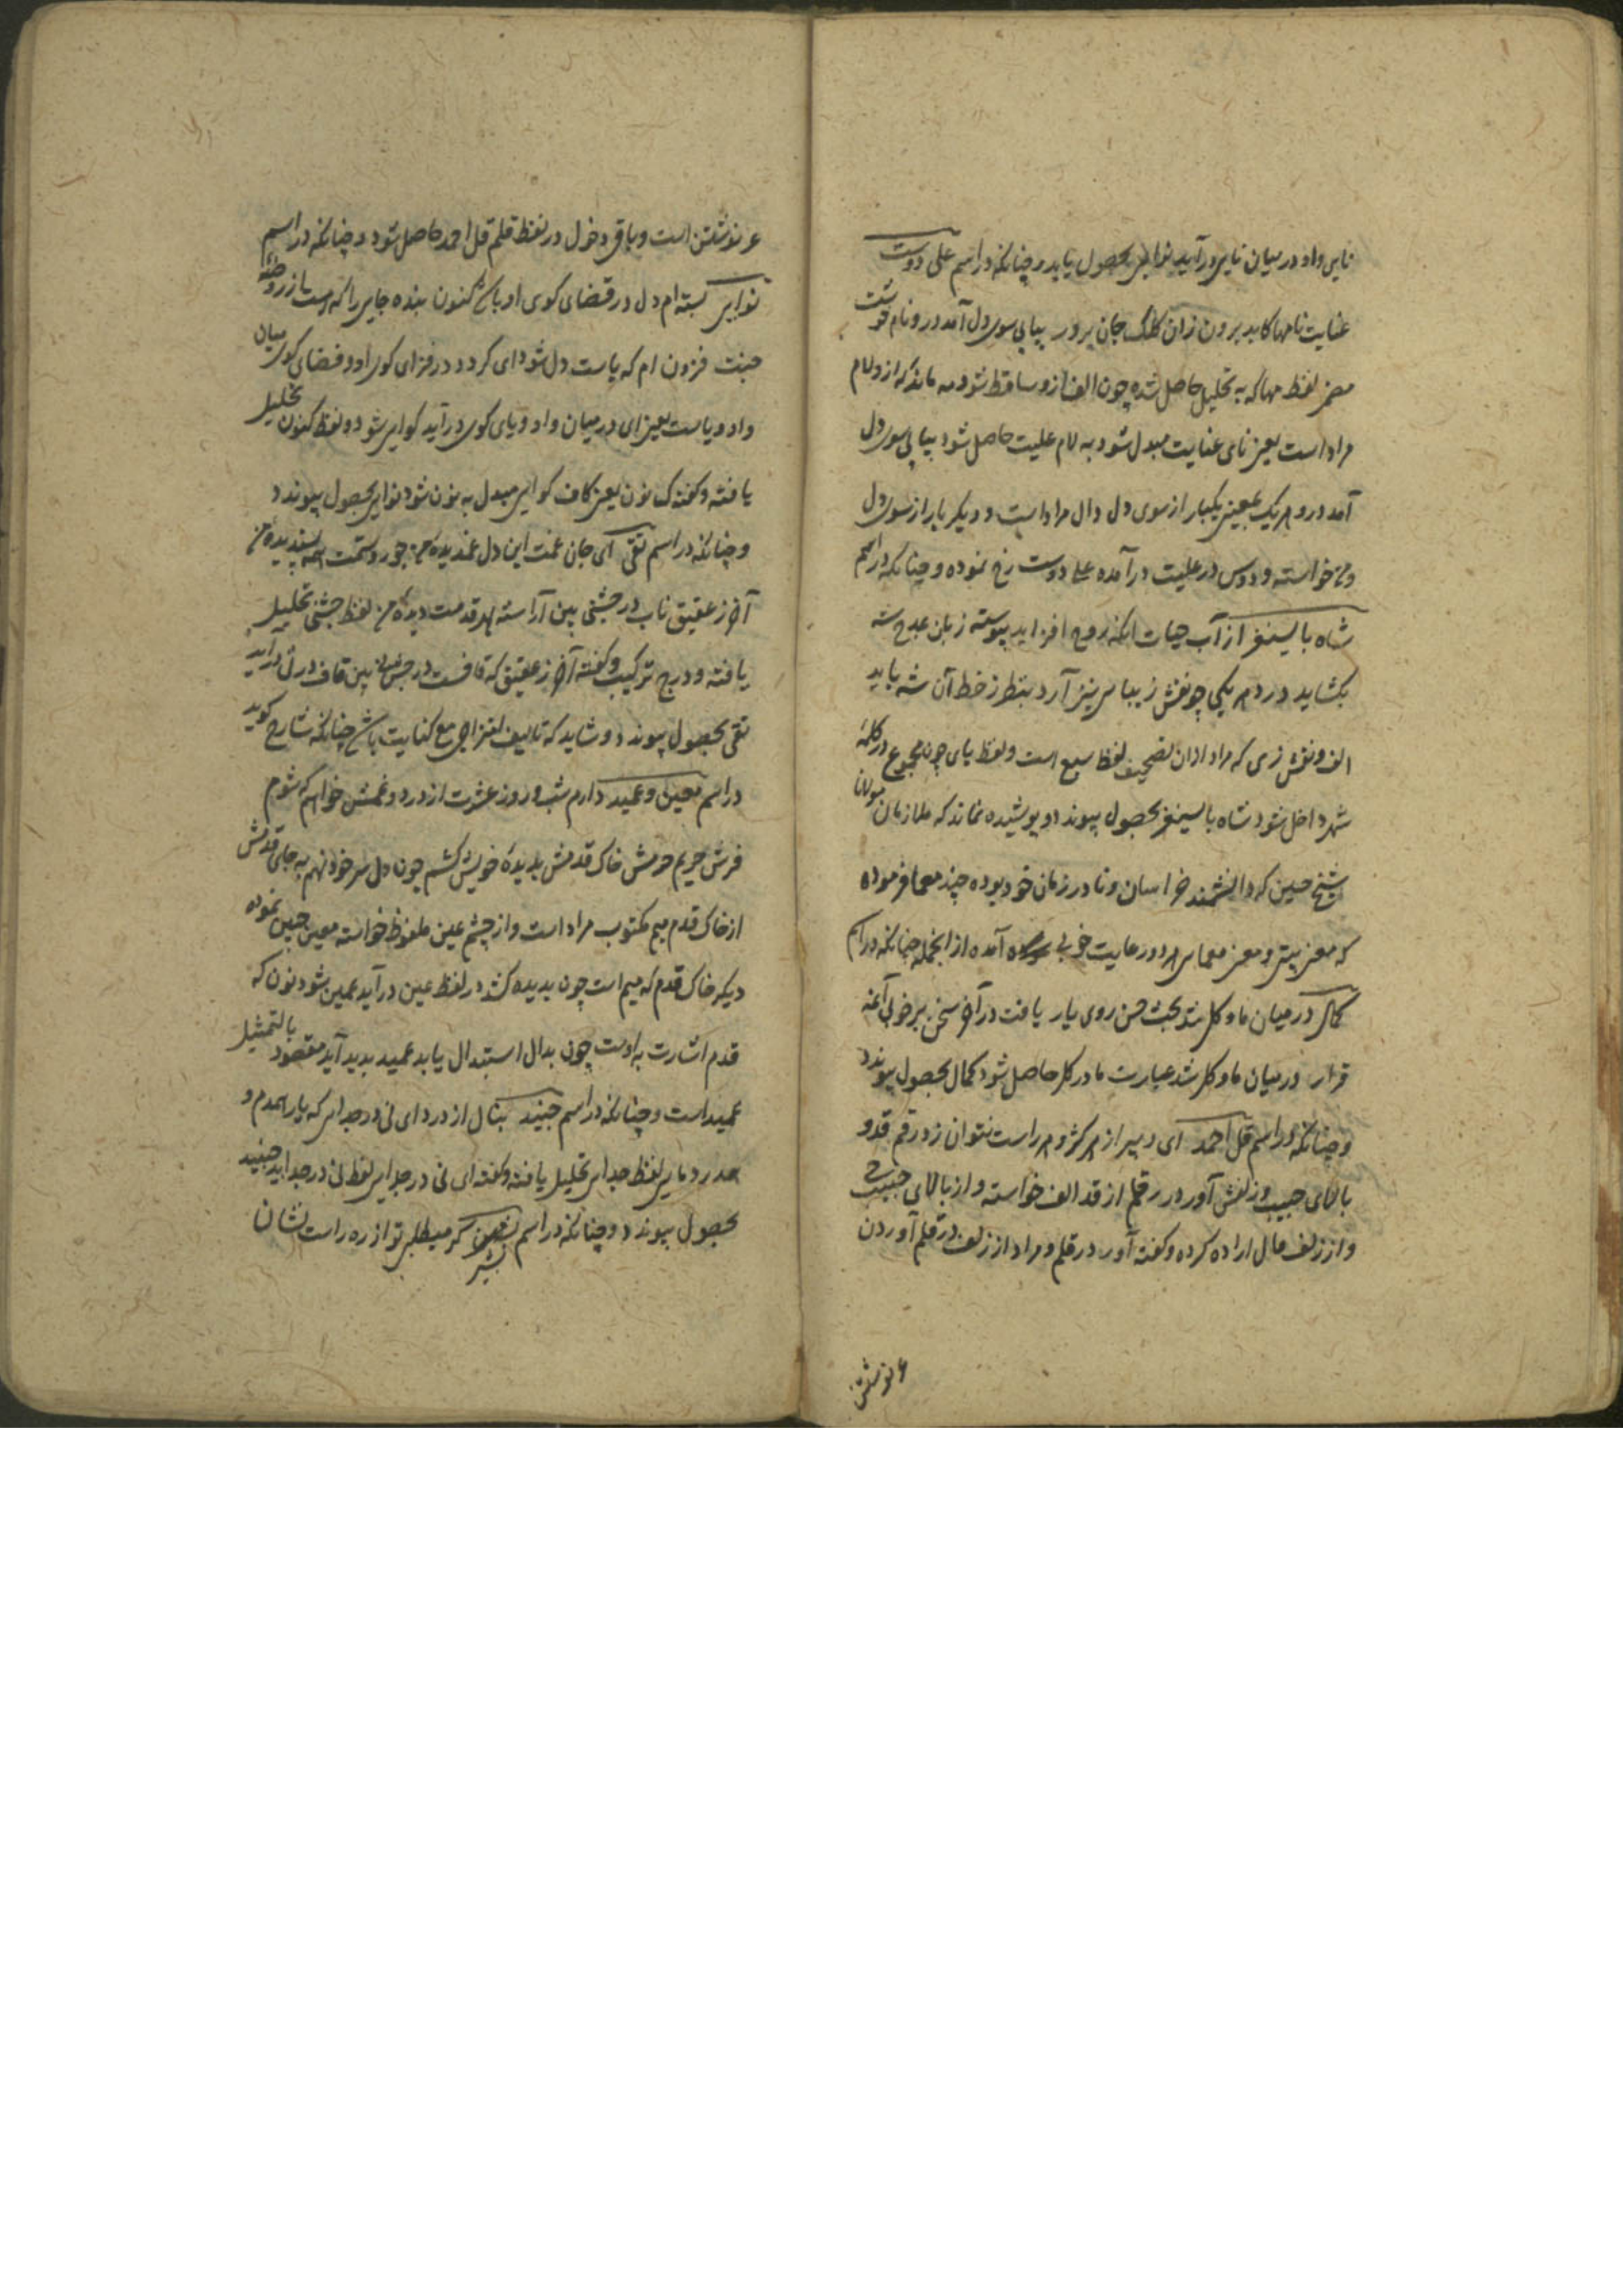 نایی واو در میان نایی درآید نوایی بحصول یابد و چنانکه در اسم علی دوست
عنایت نامها کاید برون زان کلک جان پرور پیاپی سوی دل آمد در و نام
لفظ مها که به تحلیل حاصل شده چون الف ازو ساقط شود مه ماند که ازو لام
مراد است یعنی تای عنایت مبدل شود به لام علیت حاصل شود پیاپی سوی دل
آمد در و هر یک بمعنی یکبار از سوی دل دال مراد است و دیگر بار از سوی دل
خواسته و دوس در علیت درآمده علی دوست رخ نموده و چنانکه در اسم
شاه بایسنغر از آب حیات آنکه روح افزاید پیوسته زبان بمدح شه
بگشاید در دهر یکی چو نقش زیباس نیز آرد بنظر ز خط آن شه باید
الف و نقش زی که مراد ازان تصحیف لفظ سبع است و لفظ یای چون مجموع در کلمهٔ
شهر داخل شود شاه بایسنغر بحصول پیوندد و پوشیده نماند که ملازمان مولانا
شیخ حسین که دانشمند خراسان و نادر زمان خود بوده چند معما فرموده
که معنی بیتی و معنی معمایی هر دو رعایت خوبی آمده از انجمله چنانکه در اسم
کمال در میان ما و کل شد بحث حسن روی یار یافت در آخر سخن بر خوبی آغه
قرار در میان ما و کل شد عبارت ما در کل حاصل شود کمال بحصول پیوندد
و چنانکه در اسم قل احمد ای دبیر از هر کژ و هر راست نتوان زد رقم قد و
بالای حبیب و زلفش آور در قلم از قد الف خواسته و از بالای حبیب ح
و از زلف مال اراده کرده و گفته آور در قلم و مراد از زلف در قلم آوردن
نوشتن
نوشتن است و باقی دخول در لفظ قلم قل احمد حاصل شود و چنانکه در اسم
نوایی بسته‌ام دل در فضای کوی او باش کنون بنده جایی را که هست از روضهٔ
جنت فزون ام که یاست دل شود ای کردد در فزای کوی او و فضای کوی میان
واو و یاست یعنی ای در میان واو و یای کوی درآید کوایی شود و لفظ کنون تحلیل
یافته و گفته ک نون یعنی کاف کوایی مبدل به نون شود نوایی بحصول پیوندد
و چنانکه در اسم تقی ای جان غمت این دل غمدیدهٔ من جور و ستمت همه پسندیدهٔ من
آخر ز عقیق ناب در جشنی بین آراسته بهر قدمت دیدهٔ من لفظ جشنی تحلیل
یافته و درج ترکیب و گفته آخر ز عقیق که قافست در بین قاف در درآید
تقی بحصول پیوندد و شاید که تالیف امتزاجی مع کنایت باشد چنانکه شارح گوید
در اسم معین و عمید دارم شب و روز عشرت از درد و غمش خواهم که شوم
فرش حریم حرمش خاک قدمش بدیدهٔ خویش کشم چون دل سر خود نهم به جای قدمش
از خاک قدم میم مکتوب مراد است و از چشم عین ملفوظ خواسته معین جبین نموده
دیگر خاک قدم که میم است چون بدیده کشد در لفظ عین درآید عمین شود نون که
قدم اشارت به اوست چون بدال استبدال یابد عمید پدید آید مقصود بالتمثیل
عمید است و چنانکه در اسم جنید بنال از درد ای نی در جدایی که یار همدم و
همدرد مایی لفظ جدایی تحلیل یافته و گفته ای نی در جدایی لفظ نی در جد آید جنید
بحصول پیوندد و چنانکه در اسم گر میطلبی تو از ره راست نشان
بشیر